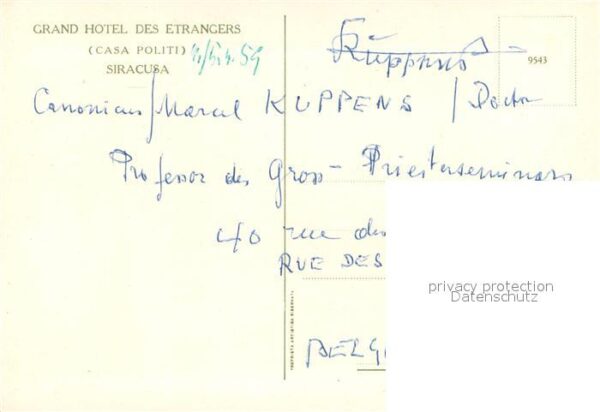 GRAND HOTEL DES ETRANGERS
(CASA POLITI)
SIRACUSA
Kuppens
9543
Canonicus / Marcel KUPPENS / Doctor
Professor des Gross-Priesterseminars
40 rue des
RUE DES
privacy protection
Datenschutz
BELG